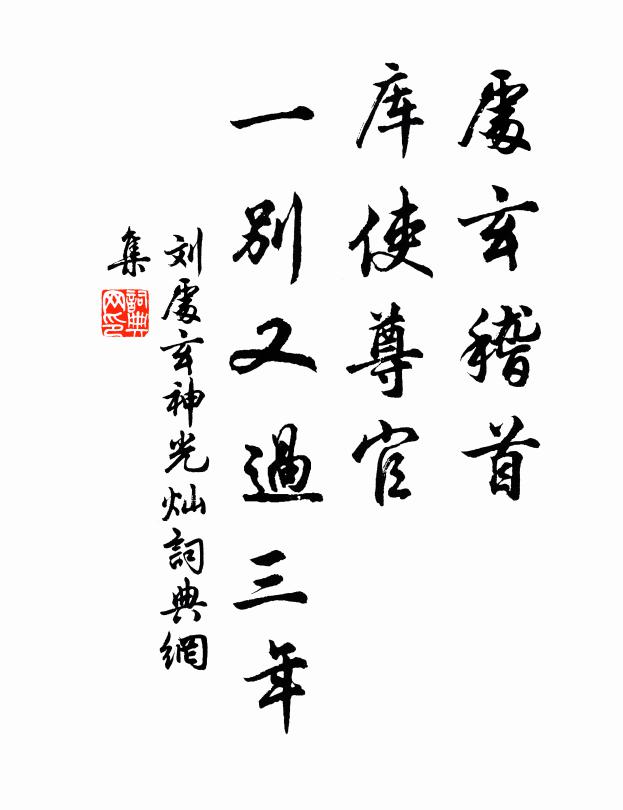 處玄稽首
库使尊官
一別又過三年
刘處玄神光灿詞典網
集
詞典
网印